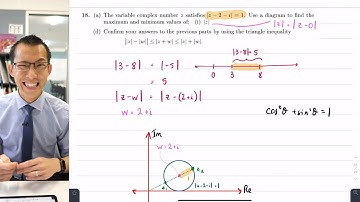 18. (a) The variable complex number z satisfies |z − 2 − i| = 1. Use a diagram to find the
maximum and minimum values of: (i) |z|
|z| = |z-0|
(d) Confirm your answers to the previous parts by using the triangle inequality
||z| − |w|| ≤ |z + w| ≤ |z| + |w|.
|3-8| = |-5|
= 5
|3-8|=5
0 3 8
|z-w| = |z-(2+i)|
w = 2+i
cos²θ + sin²θ = 1
Im
w=2+i
1
|z-2-i|=1
Re